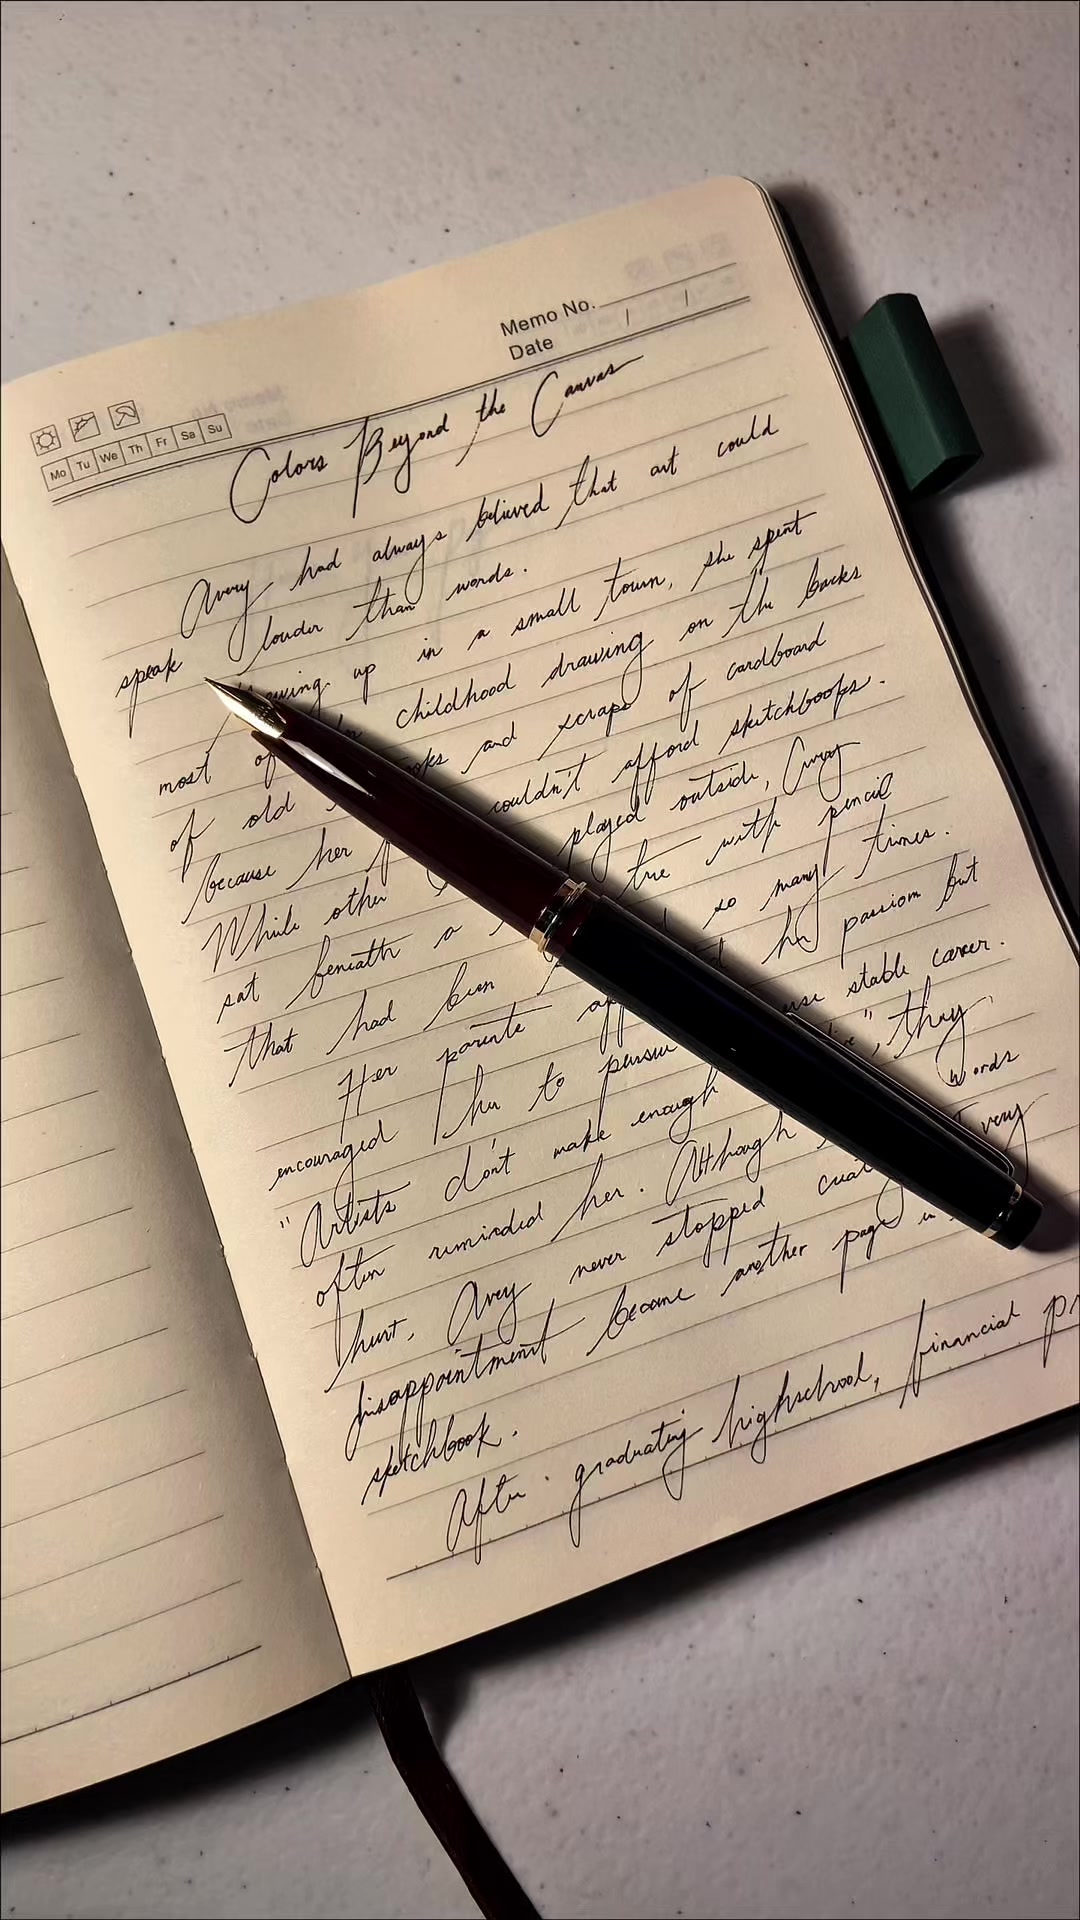 Memo No.
Date / /
Mo Tu We Th Fr Sa Su
Colors Beyond the Canvas
Avery had always believed that art could
speak louder than words.
up in a small town, she spent
most childhood drawing on the backs
of old and scraps of cardboard
because her couldn't afford sketchbooks.
While other played outside, Avery
sat beneath a tree with pencil
that had been so many times.
Her parents her passion but
encouraged her to pursue stable career.
"Artists don't make enough ", they
often reminded her. Although words
hurt, Avery never stopped very
disappointment became another page in
sketchbook.
After graduating highschool, financial